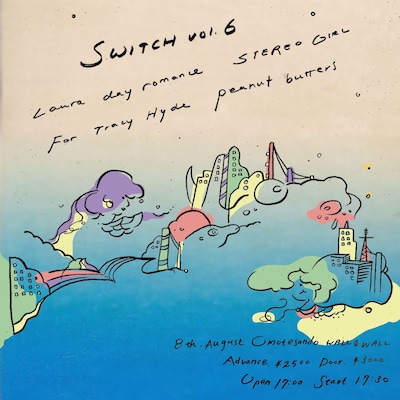 SWITCH vol. 6
Laura day romance STEREO GIRL
For Tracy Hyde peanut butters
8th. August Omotesando WALL & WALL
Advance ¥2500 Door ¥3000
Open 17:00 Start 17:30